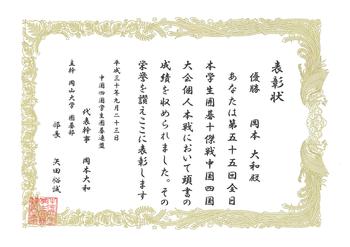 表彰状
優勝 岡本 大和殿
あなたは第五十五回全日
本学生囲碁十傑戦中国四国
大会個人本戦において頭書の
成績を収められました。その
栄誉を讃えここに表彰します
平成三十年九月二十三日
中国四国学生囲碁連盟
代表幹事 岡本大和
主幹 岡山大学 囲碁部
部長 矢田裕誠